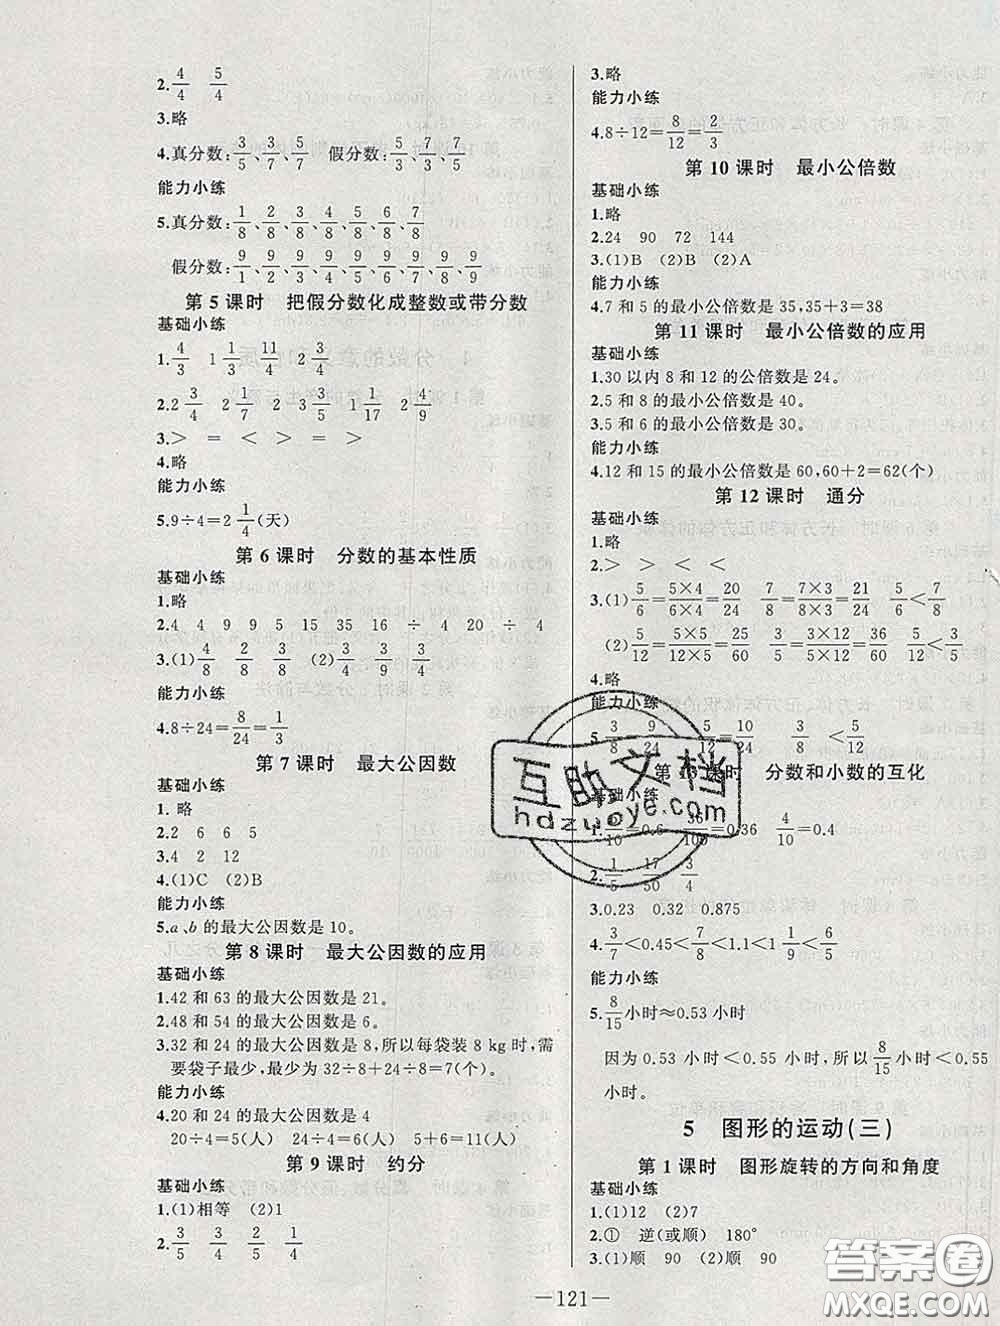 2. 4/4 5/4
3.略
4.真分数:3/5、3/7、5/7 假分数:5/3、7/3、7/5
能力小练
5.真分数:1/8、2/8、3/8、4/8、5/8、6/8、7/8
假分数:9/1、9/2、9/3、9/4、9/5、9/6、9/7、9/8、9/9
第 5 课时 把假分数化成整数或带分数
基础小练
1. 4/3 1 1/3 11/4 2 3/4
2. 2 3/4 2 1/7 2 3 3/5 1 1/17 2 4/9
3.> = < > = >
4.略
能力小练
5.9÷4=2 1/4(天)
第 6 课时 分数的基本性质
基础小练
1.略
2.4 4 9 9 5 15 35 16 ÷ 4 20 ÷ 4
3.(1)4/8 2/8 3/8 (2)3/4 3/9 3/4
能力小练
4.8÷24=8/24=1/3
第 7 课时 最大公因数
基础小练
1. 略
2.2 6 6 5
3.4 2 12
4.(1)C (2)B
能力小练
5.a、b的最大公因数是 10。
第 8 课时 最大公因数的应用
基础小练
1.42 和 63 的最大公因数是 21。
2.48 和 54 的最大公因数是 6。
3.32 和 24 的最大公因数是 8,所以每袋装 8 kg 时,需
要袋子最少,最少为 32÷8+24÷8=7(个)。
能力小练
4.20 和 24 的最大公因数是 4
20÷4=5(人) 24÷4=6(人) 5+6=11(人)
第 9 课时 约分
基础小练
1.(1)相等 (2)1
2. 3/5 3/4 3/4 4/5
3.略
能力小练
4.8÷12=8/12=2/3
第 10 课时 最小公倍数
基础小练
1.略
2.24 90 72 144
3.(1)B (2)B (2)A
能力小练
4.7 和 5 的最小公倍数是 35,35+3=38
第 11 课时 最小公倍数的应用
基础小练
1.30 以内 8 和 12 的公倍数是 24。
2.5 和 8 的最小公倍数是 40。
3.5 和 6 的最小公倍数是 30。
能力小练
4.12 和 15 的最小公倍数是 60,60+2=62(个)
第 12 课时 通分
基础小练
1.略
2.> > < <
3.(1)5/6=5×4/6×4=20/24 7/8=7×3/8×3=21/24 5/6<7/8
(2)5/12=5×5/12×5=25/60 3/5=3×12/5×12=36/60 5/12<3/5
4.略
能力小练
5. 3/8 9/24 5/12=10/24 3/8<5/12
第 13 课时 分数和小数的互化
基础小练
1. 6/10=0.6 36/100=0.36 4/10=0.4
2. 1/5 17/50 3/4
3.0.23 0.32 0.875
4. 3/7<0.45<7/9<1.1<1 1/9<6/5
能力小练
5. 8/15小时≈0.53 小时
因为 0.53 小时<0.55 小时,所以8/15小时<0.55
小时。
5 图形的运动(三)
第 1 课时 图形旋转的方向和角度
基础小练
1.(1)12 (2)7
2.① 逆(或顺) 180°
3.(1)顺 90 (2)顺 90
—121—
互助文档
hdzuoye.com
答案圈
MXQE.COM